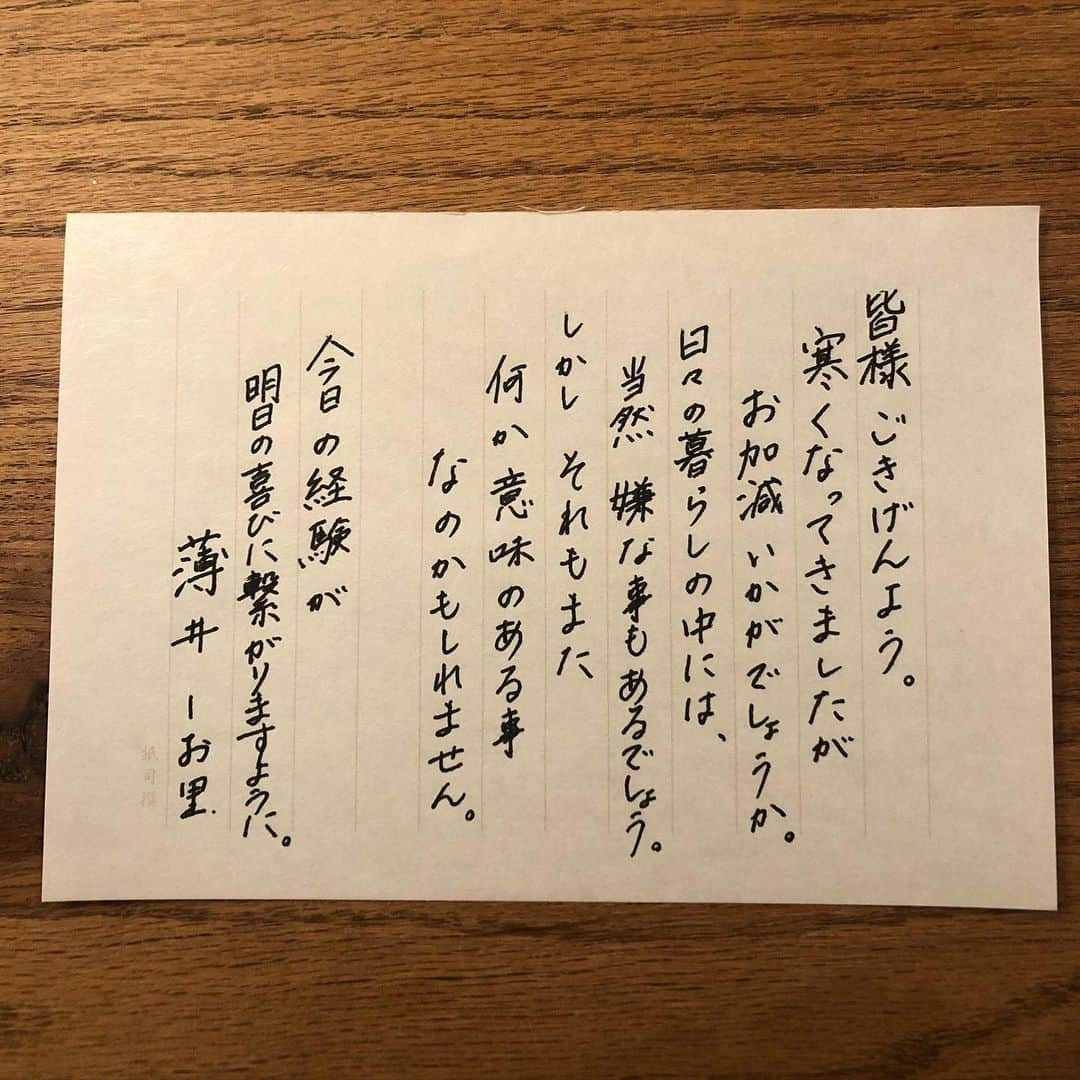 皆様ごきげんよう。
寒くなってきましたが
お加減いかがでしょうか。
日々の暮らしの中には、
当然 嫌な事もあるでしょう。
しかし それもまた
何か意味のある事
なのかもしれません。
今日の経験が
明日の喜びに繋がりますように。
薄井 ーお里